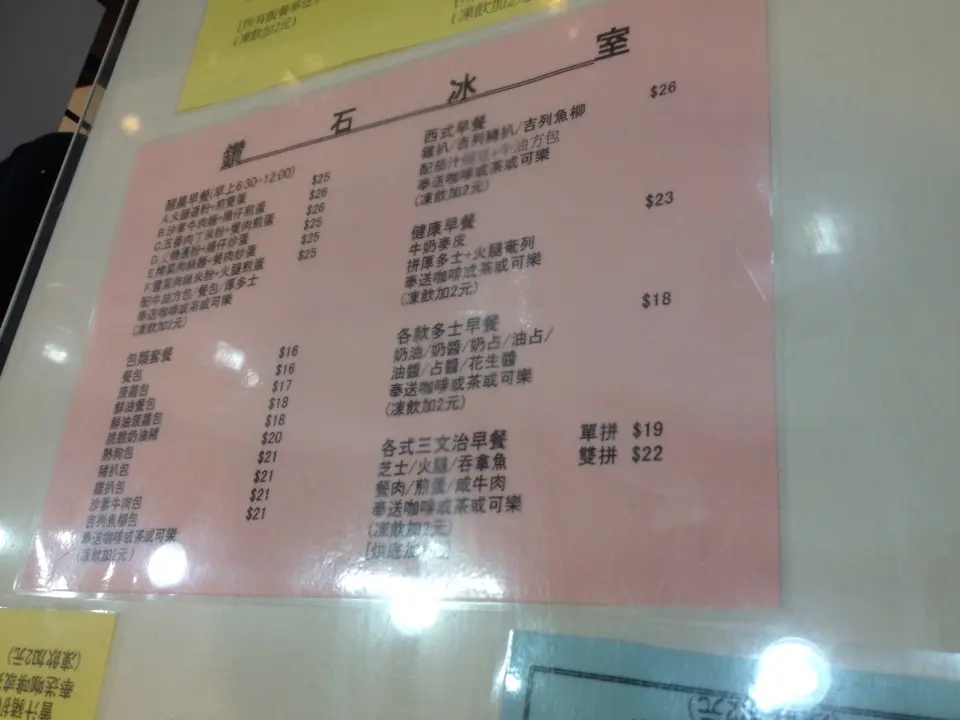 (凍飲加2元)
鑽石冰室
醒晨早餐(早上6:30-12:00)
A.火腿通粉+煎雙蛋 $25
B.沙嗲牛肉麵+腸仔煎蛋 $26
C.五香肉丁米粉+餐肉煎蛋 $26
粉+腸仔炒蛋 $25
E.榨菜肉絲麵+餐肉炒蛋 $25
F.雪菜肉絲米粉+火腿煎蛋 $25
配牛油方包/餐包/厚多士
奉送咖啡或茶或可樂
(凍飲加2元)
包類套餐
餐包 $16
菠蘿包 $16
鮮油餐包 $17
鮮油菠蘿包 $18
脆脆奶油豬 $18
熱狗包 $20
豬扒包 $21
雞扒包 $21
沙嗲牛肉包 $21
吉列魚柳包 $21
奉送咖啡或茶或可樂
(凍飲加2元)
西式早餐 $26
雞扒/吉列豬扒/吉列魚柳
配茄汁 牛油方包
奉送咖啡或茶或可樂
(凍飲加2元)
健康早餐 $23
牛奶麥皮
拼厚多士+火腿奄列
奉送咖啡或茶或可樂
(凍飲加2元)
各款多士早餐 $18
奶油/奶醬/奶占/油占/
油醬/占醬/花生醬
奉送咖啡或茶或可樂
(凍飲加2元)
各式三文治早餐 單拼 $19
芝士/火腿/吞拿魚 雙拼 $22
餐肉/煎蛋/咸牛肉
奉送咖啡或茶或可樂
(凍飲加2元)
(凍飲加2元)
奉送咖啡或